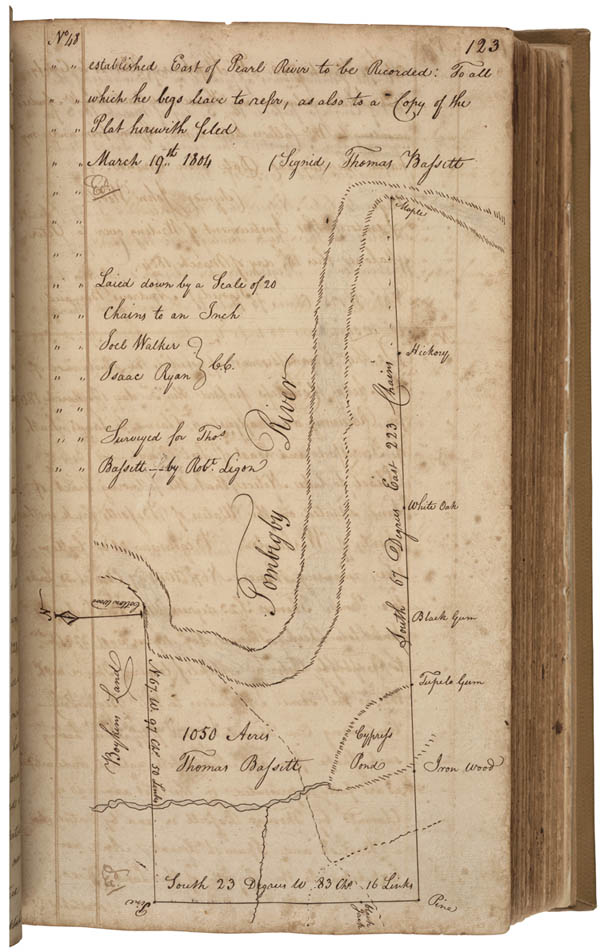 123
No 48
established East of Pearl River to be Recorded: To all
which he begs leave to refer, as also to a Copy of the
Plat herewith filed
March 19th 1804 (Signed) Thomas Bassett
Laied down by a Scale of 20
Chains to an Inch
Joel Walker
Isaac Ryan } C.C.
Surveyed for Thos
Bassett - by Robt. Ligon
Tombigby River
Maple
Hickory
White Oak
Black Gum
Tupelo Gum
Iron Wood
Pine
South 67 Degrees East 223 Chains
N
Cotton wood
Boykin Land
N 67 W 97 Chs 50 Links
1050 Acres
Thomas Bassett
Cypress
Pond
South 23 Degrees W 83 Chs. 16 Links
Pine